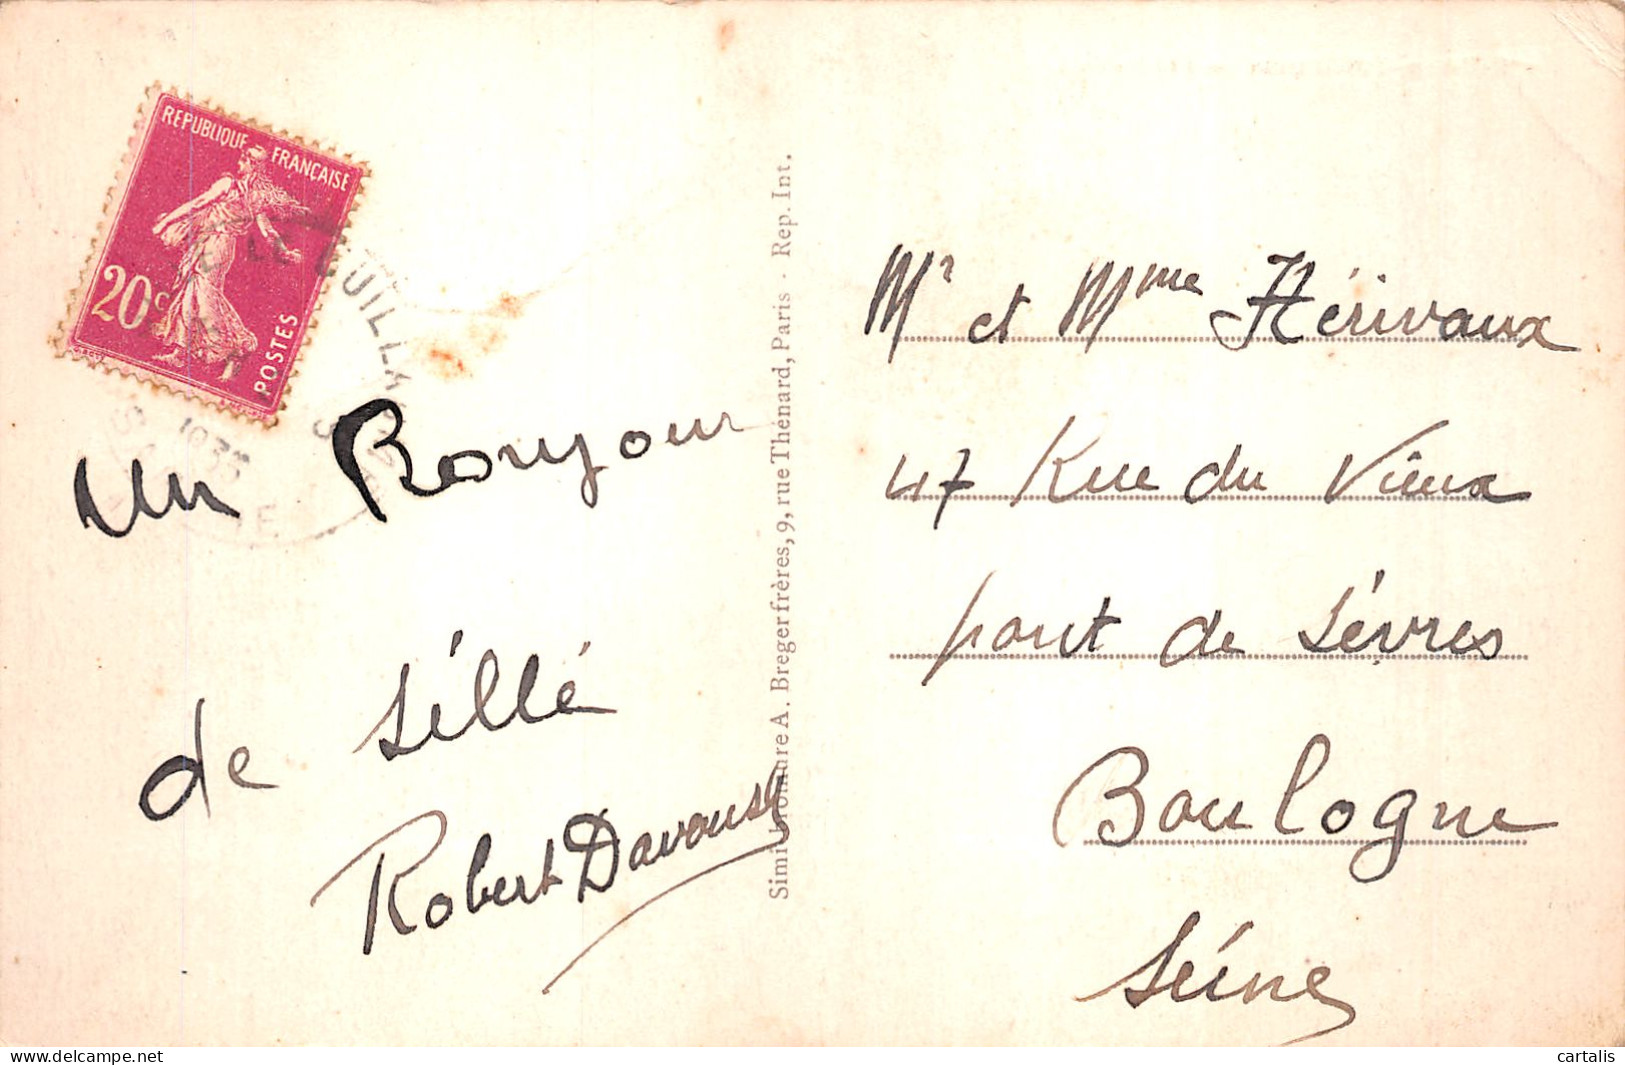 REPUBLIQUE FRANÇAISE
20c
POSTES
Un Bonjour
de Sillé
Robert Davoust
Simili-Bromure A. Breger frères, 9, rue Thenard, Paris - Rep. Int.
Mr et Mme Hérivaux
47 Rue du Vieux
pont de Sèvres
Boulogne
Seine
www.delcampe.net
cartalis